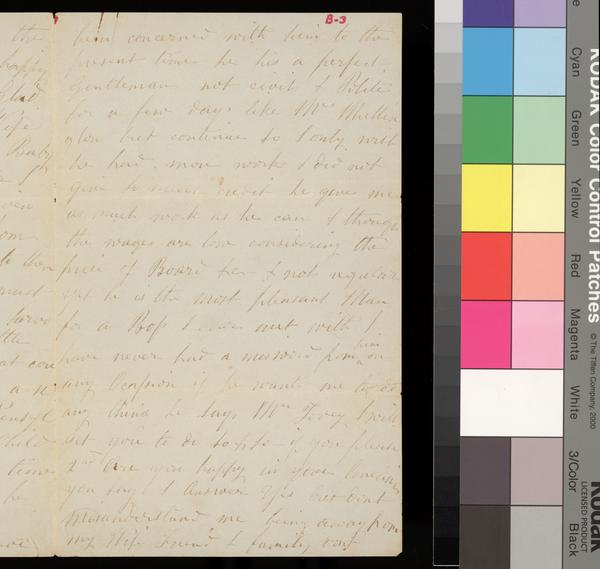 B-3
him concerned with him to the
present time he his a perfect
Gentleman not civil & Polite
for a few days like Mr
but continue so I only wish
he had more work & did not
give so much credit he gives me
as much work as he can & though
the wages are low considering the
price of Board &c & not regular
yet he is the most pleasant Man
for a Boss I ever met with I
have never had a missword from him on
any Occasion if he wants me to do
any thing he says Mr I will
get you to do so & so if you please
2nd Are you happy in your
you say I Answer Yes but dont
misunderstand me being away from
my Wife Friend & family, dont
the
happy
Glad
Wife
Baby
then
must
at
a
Child
time
he
KODAK Color Control Patches
© The Tiffen Company, 2000
Kodak
LICENSED PRODUCT
Cyan
Green
Yellow
Red
Magenta
White
3/Color
Black